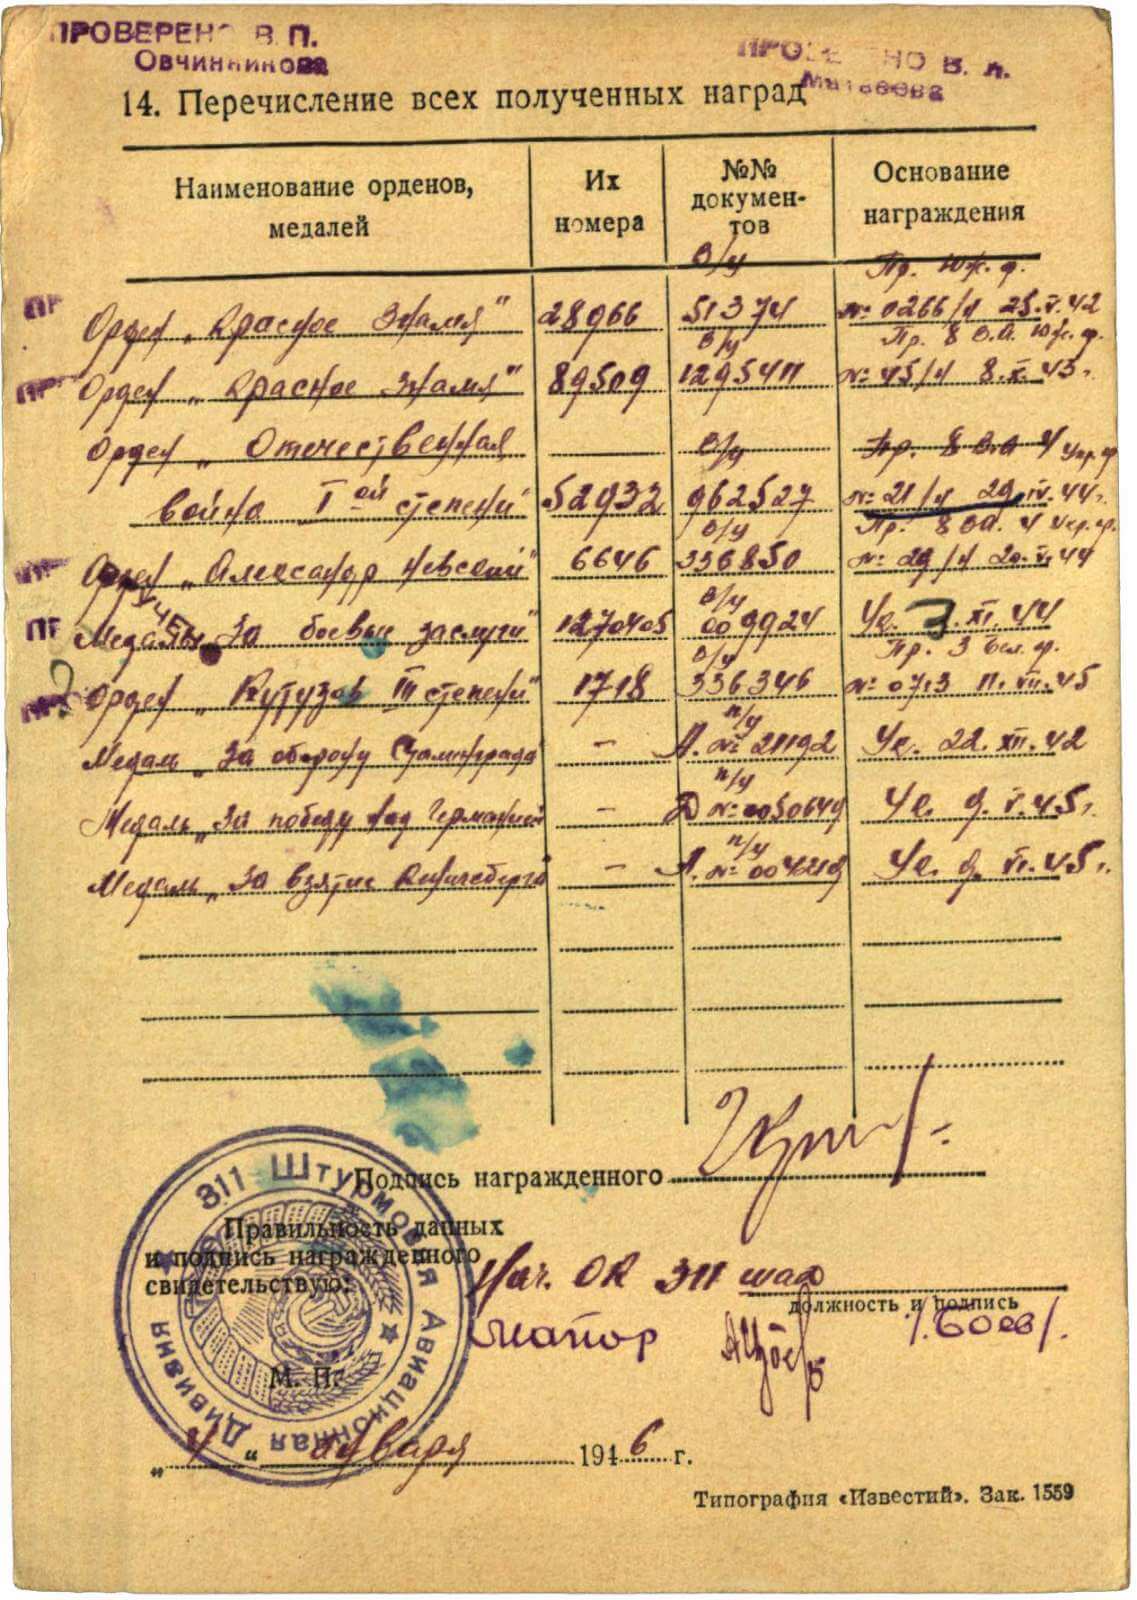 ПРОВЕРЕНО В. П.
Овчинникова
ПРО ЕНО В. Л.
Матвеева
14. Перечисление всех полученных наград
Наименование орденов, медалей
Их номера
№№ докумен-тов
Основание награждения
Орден „Красное Знамя" 28966 в/ч 51374 Пр. Юж. ф. № 0266/н 25.V.42
Орден „Красное Знамя" 89509 в/ч 1295411 Пр. 8 В.А. Юж. ф. № 45/н 8.X.43г.
Орден „Отечественная
война I ой степени" 52932 в/ч 962527 Пр. 8 ВА 4 Укр. ф № 21/н 29.IV.44г.
Орден „Александр Невский" 6646 в/ч 336850 Пр. 8 ВА. 4 Укр. ф. № 29/н 20.VI.44
Медаль „За боевые заслуги" 1270405 в/ч 009924 Ук. 3.XI.44
Орден „Кутузов III степени" 1718 в/ч 336346 Пр. 3 Бел. ф. № 0713 11.VII.45
Медаль „За оборону Сталинграда" – п/у А. № 21192 Ук. 22.XII.42
Медаль „За победу над Германией – п/у Д № 0050649 Ук. 9.V.45г.
Медаль „За взятие Кенигсберга – п/у А. № 004219 Ук. 9.VI.45г.
Подпись награжденного
Правильность данных
и подпись награжденного
свидетельствую:
Нач. ОК 311 шад
должность и подпись
майор /Боев/.
М. П.
311 Штурмовая Авиационная Дивизия
„4" января 1946 г.
Типография «Известий». Зак. 1559